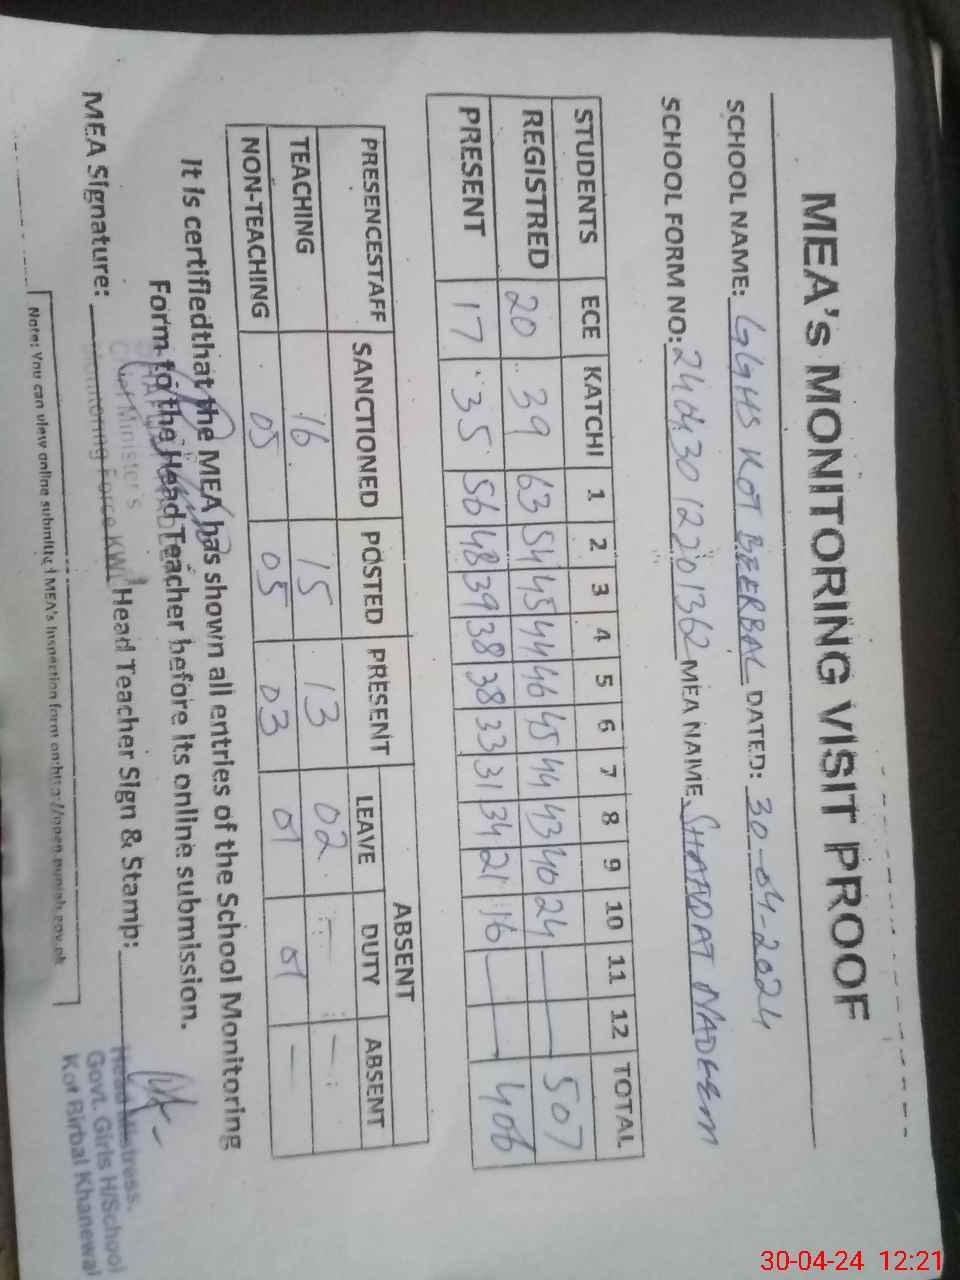 MEA's MONITORING VISIT PROOF
SCHOOL NAME: GGHS KOT BEERBAL DATED: 30-04-2024
SCHOOL FORM NO: MEA NAME SHAFDAT NADEEM
STUDENTS ECE KATCHI 1 2 3 4 5 6 7 8 9 10 11 12 TOTAL
REGISTRED 20 39 63 54 45 44 46 45 44 43 40 24 — — 507
PRESENT 17 35 56 48 39 38 38 33 31 34 21 16 — — 406
PRESENCESTAFF SANCTIONED POSTED PRESENT ABSENT
LEAVE DUTY ABSENT
TEACHING 16 15 13 02 — —
NON-TEACHING 05 05 03 01 01 —
It is certifiedthat the MEA has shown all entries of the School Monitoring
Form to the Head Teacher before its online submission.
MEA Signature: Head Teacher Sign & Stamp:
Chief Minister's
Monitoring Force KWL
Head Mistress.
Govt. Girls H/School
Kot Birbal Khanewal
Note: You can view online submitted MEA's Inspection form on:http://open.punjab.gov.pk
30-04-24 12:21